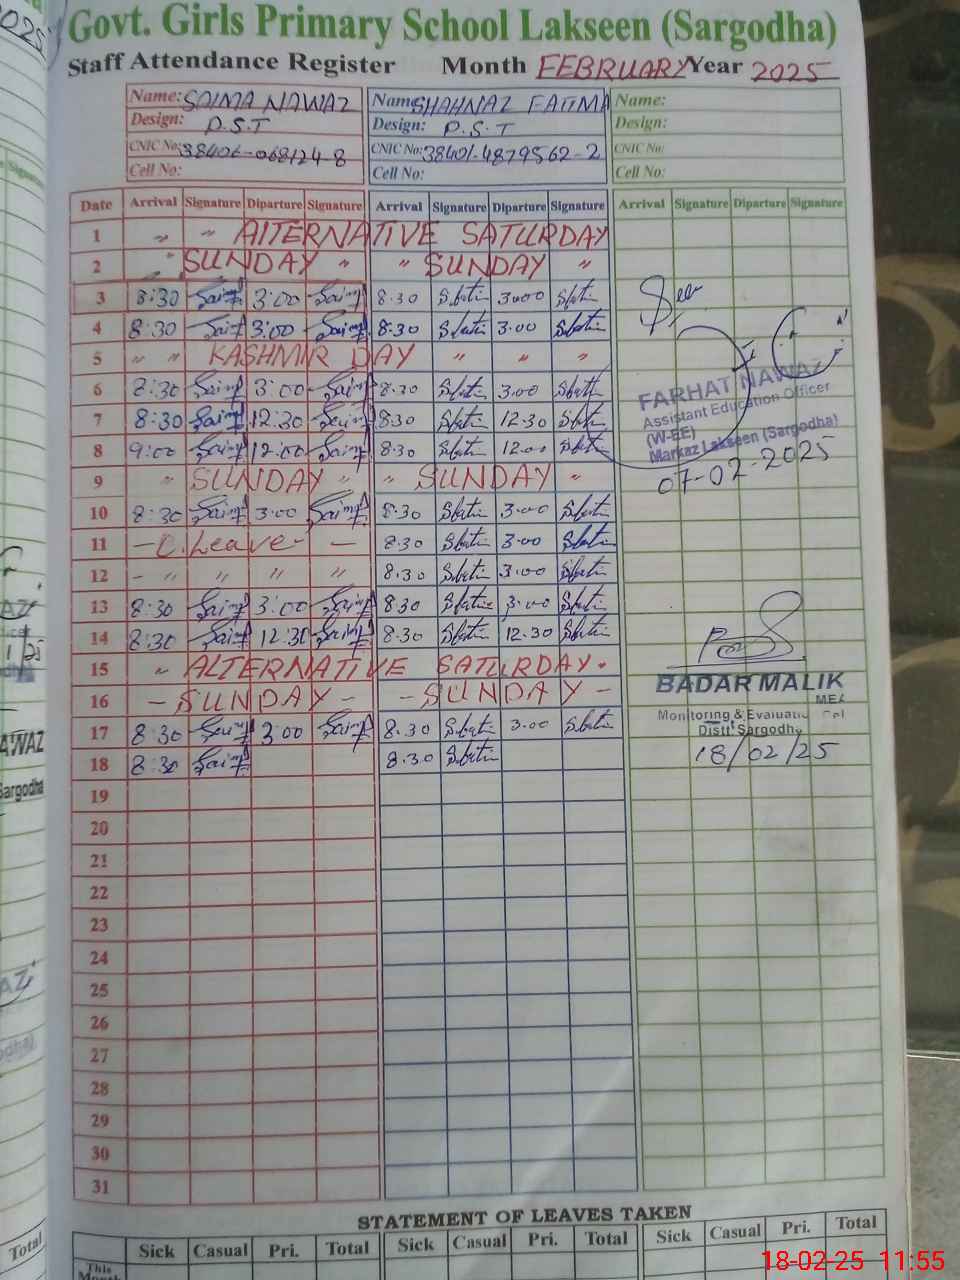 Govt. Girls Primary School Lakseen (Sargodha)
Staff Attendance Register Month FEBRUARY Year 2025
Name: SAIMA NAWAZ Name: SHAHNAZ FATIMA Name:
Design: P.S.T Design: P.S.T Design:
CNIC No: 38406-068124-8 CNIC No: 38401-4879562-2 CNIC No:
Cell No: Cell No: Cell No:
Date Arrival Signature Diparture Signature Arrival Signature Diparture Signature Arrival Signature Diparture Signature
1 " " AlTERNATIVE SATURDAY
2 " SUNDAY " " SUNDAY "
3 8:30 Saima 3:00 Saima 8.30 3.00
4 8:30 Saima 3:00 Saima 8.30 3.00
5 " " KASHMIR DAY " " "
6 8:30 Saima 3:00 Saima 8.30 3.00
7 8:30 Saima 12.30 Saima 8.30 12.30
8 9:00 Saima 12:00 Saima 8.30 12.00
9 " SUNDAY " " SUNDAY "
10 8:30 Saima 3:00 Saima 8.30 3.00
11 - C.Leave - - 8.30 3.00
12 - " " " " 8.30 3.00
13 8:30 Saima 3:00 Saima 8.30 3.00
14 8:30 Saima 12:30 Saima 8.30 12.30
15 " ALTERNATIVE SATURDAY.
16 - SUNDAY - - SUNDAY -
17 8:30 Saima 3:00 Saima 8.30 3.00
18 8:30 Saima 8.30
19
20
21
22
23
24
25
26
27
28
29
30
31
FARHAT NAWAZ
Assistant Education Officer
(W-EE)
Markaz Lakseen (Sargodha)
07-02-2025
BADAR MALIK
MEA
Monitoring & Evaluation Cell
Distt: Sargodha
18/02/25
STATEMENT OF LEAVES TAKEN
Sick Casual Pri. Total Sick Casual Pri. Total Sick Casual Pri. Total
This Month
18-02-25 11:55